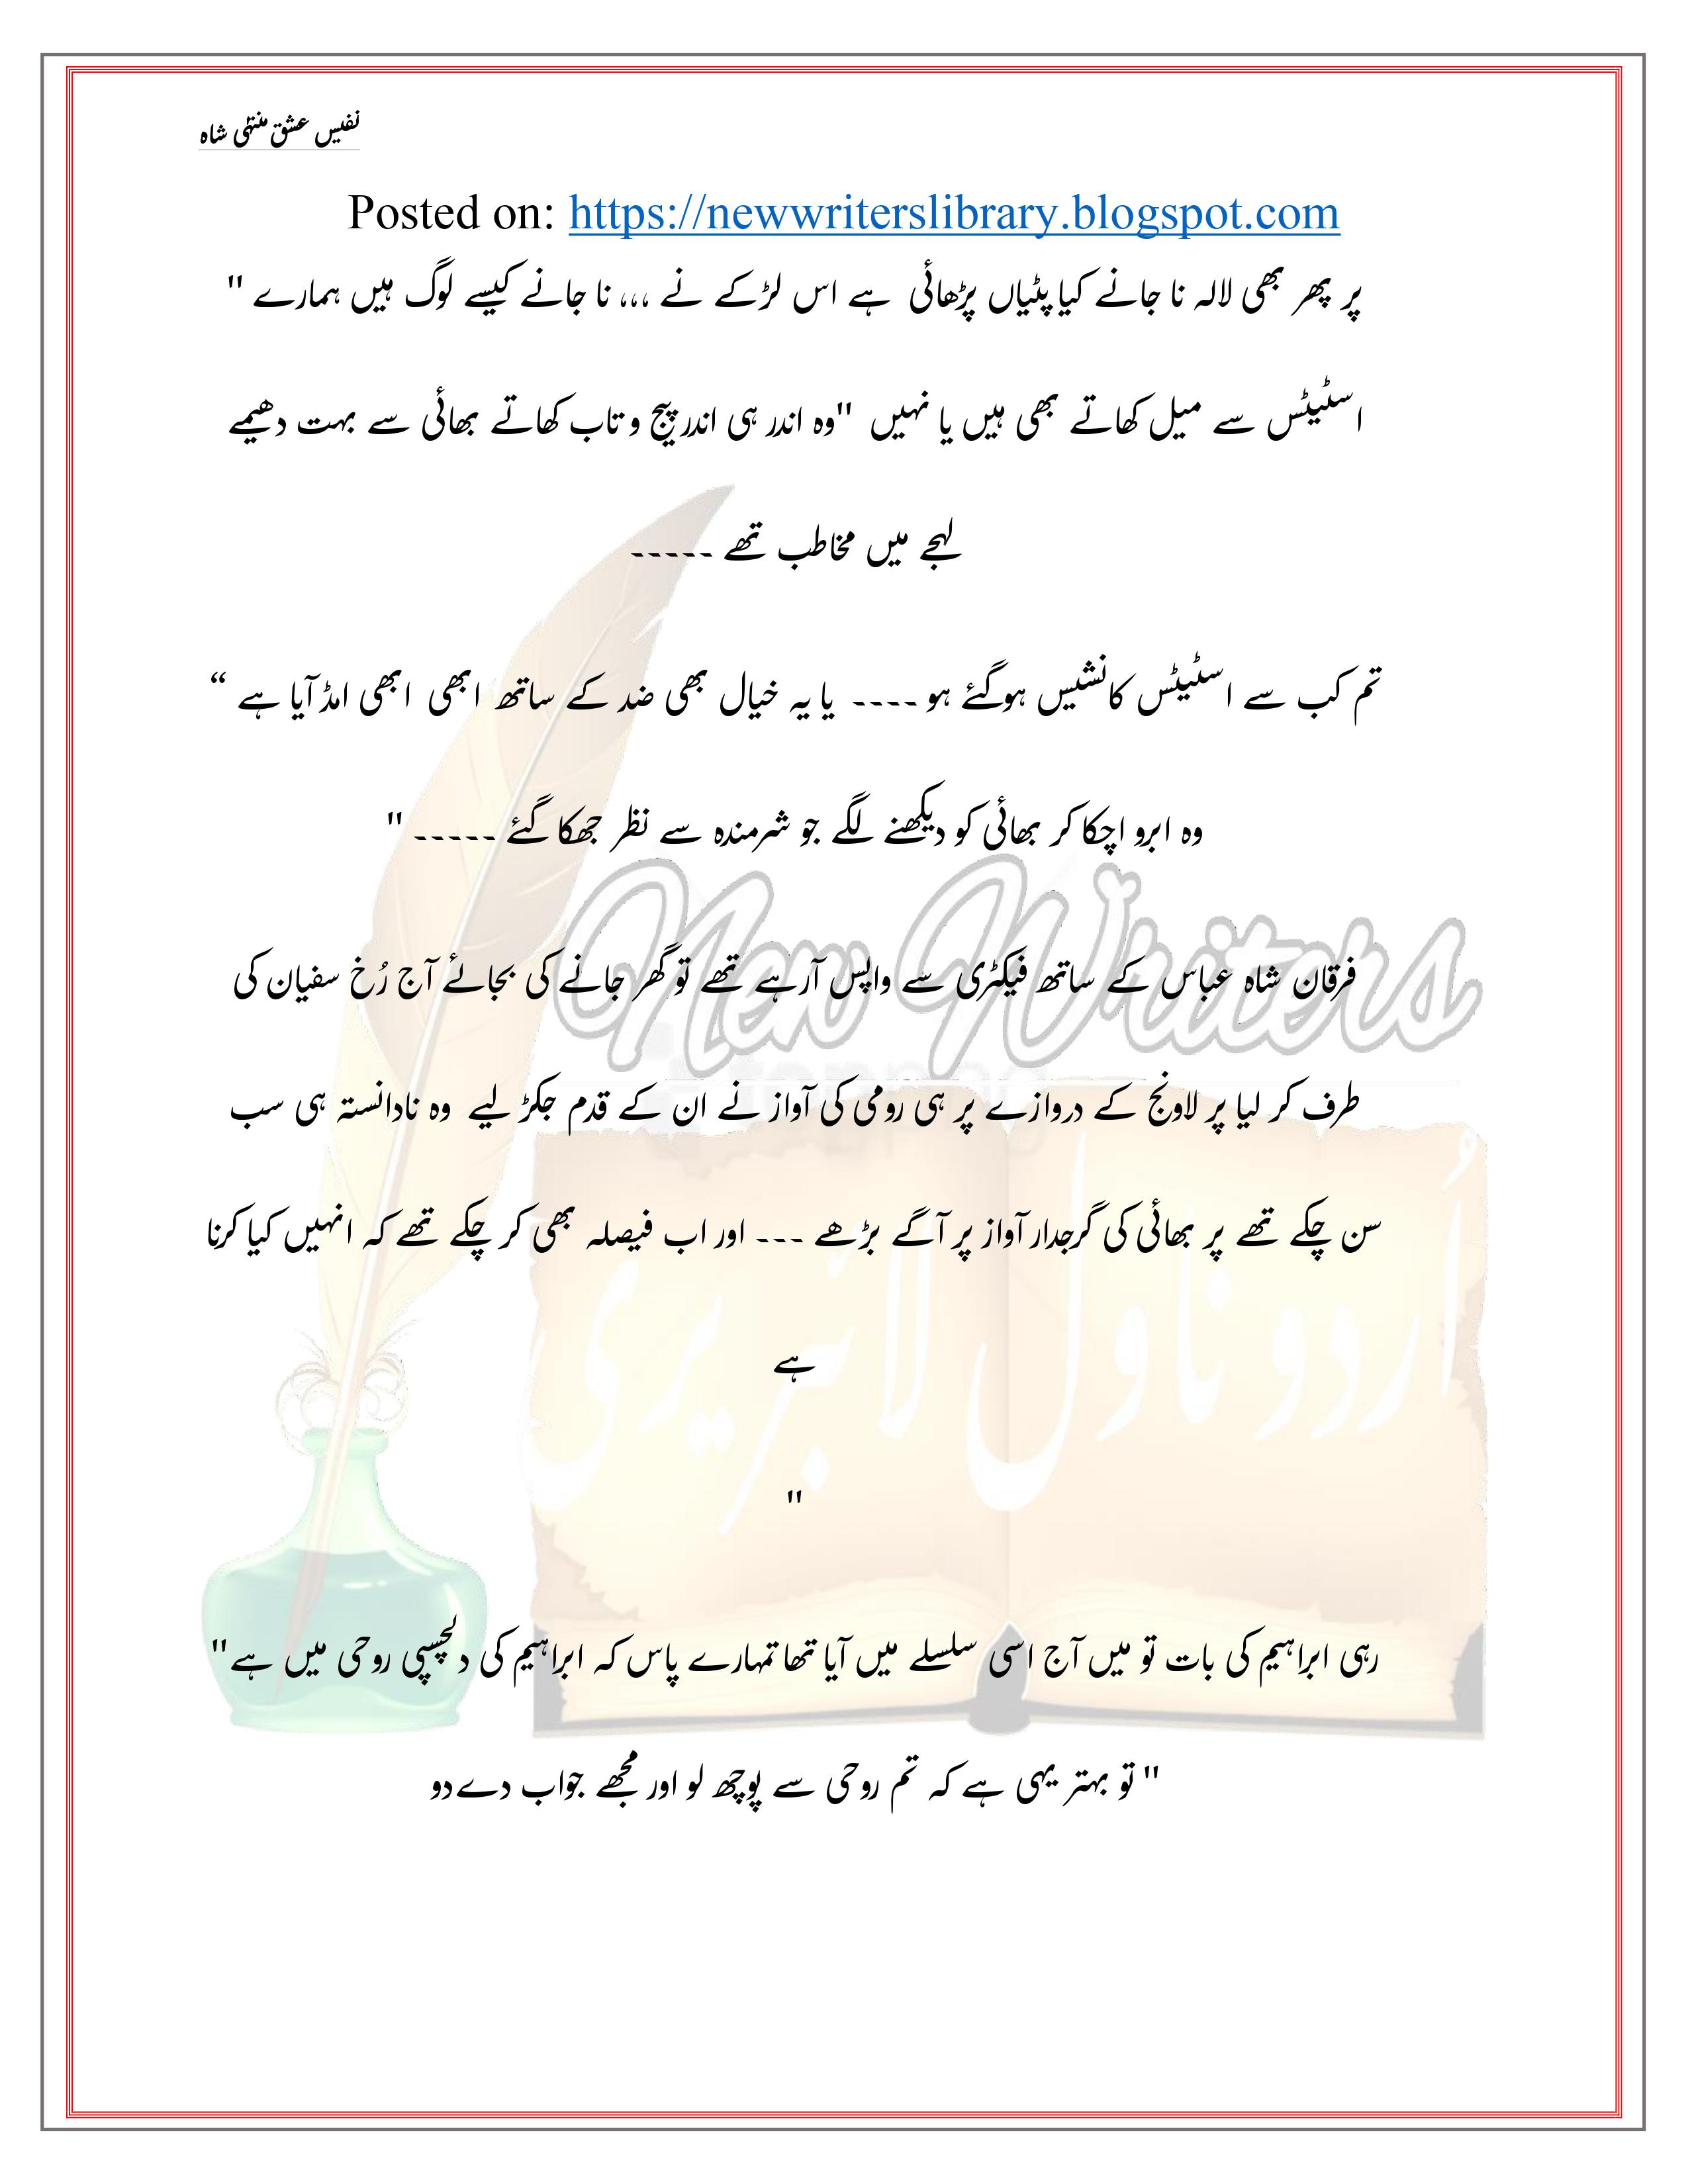 نفیس عشق منتہٰی شاہ
Posted on: https://newwriterslibrary.blogspot.com
پر پھر بھی لالہ نا جانے کیا پٹیاں پڑھائی ہے اس لڑکے نے ،،، نا جانے کیسے لوگ ہیں ہمارے "
اسٹیٹس سے میل کھاتے بھی ہیں یا نہیں "وہ اندر ہی اندر پیچ و تاب کھاتے بھائی سے بہت دھیمے
لہجے میں مخاطب تھے -----
تم کب سے اسٹیٹس کانشیس ہوگئے ہو ---- یا یہ خیال بھی ضد کے ساتھ ابھی ابھی امڈ آیا ہے “
وہ ابرو اچکا کر بھائی کو دیکھنے لگے جو شرمندہ سے نظر جھکا گئے ----- "
New Writers
فرقان شاہ عباس کے ساتھ فیکٹری سے واپس آرہے تھے تو گھر جانے کی بجائے آج رُخ سفیان کی
طرف کر لیا پر لاونج کے دروازے پر ہی رومی کی آواز نے ان کے قدم جکڑ لیے وہ نادانستہ ہی سب
سن چکے تھے پر بھائی کی گرجدار آواز پر آگے بڑھے --- اور اب فیصلہ بھی کر چکے تھے کہ انہیں کیا کرنا
ہے
اُردو ناول لائبریری
"
رہی ابراہیم کی بات تو میں آج اسی سلسلے میں آیا تھا تمہارے پاس کہ ابراہیم کی دلچسپی روحی میں ہے"
" تو بہتر یہی ہے کہ تم روحی سے پوچھ لو اور مجھے جواب دے دو